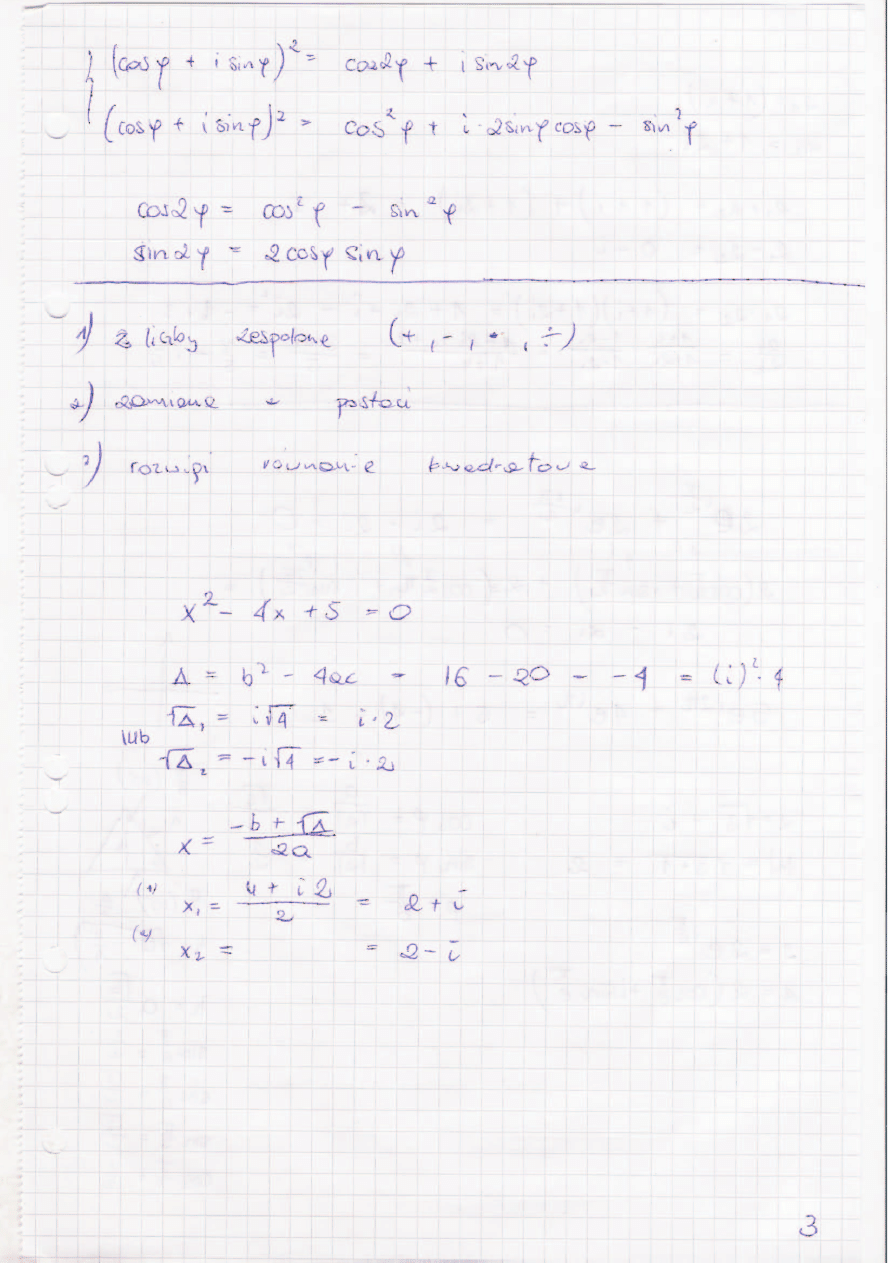 (cosφ + i sinφ)² = cos2φ + i sin2φ
(cosφ + i sinφ)² = cos²φ + i·2sinφcosφ - sin²φ
cos2φ = cos²φ - sin²φ
sin2φ = 2cosφ sinφ
1) 2 liczby zespolone (+, -, •, ÷)
2) zamiana postaci
3) równanie kwadratowe
x² - 4x + 5 = 0
Δ = b² - 4ac = 16 - 20 = -4 = (i)²·4
√Δ₁ = i√4 = i·2
lub
√Δ₂ = -i√4 = -i·2
x = (-b + √Δ)/2a
(1) x₁ = (4 + i2)/2 = 2 + i
(2) x₂ = = 2 - i
3